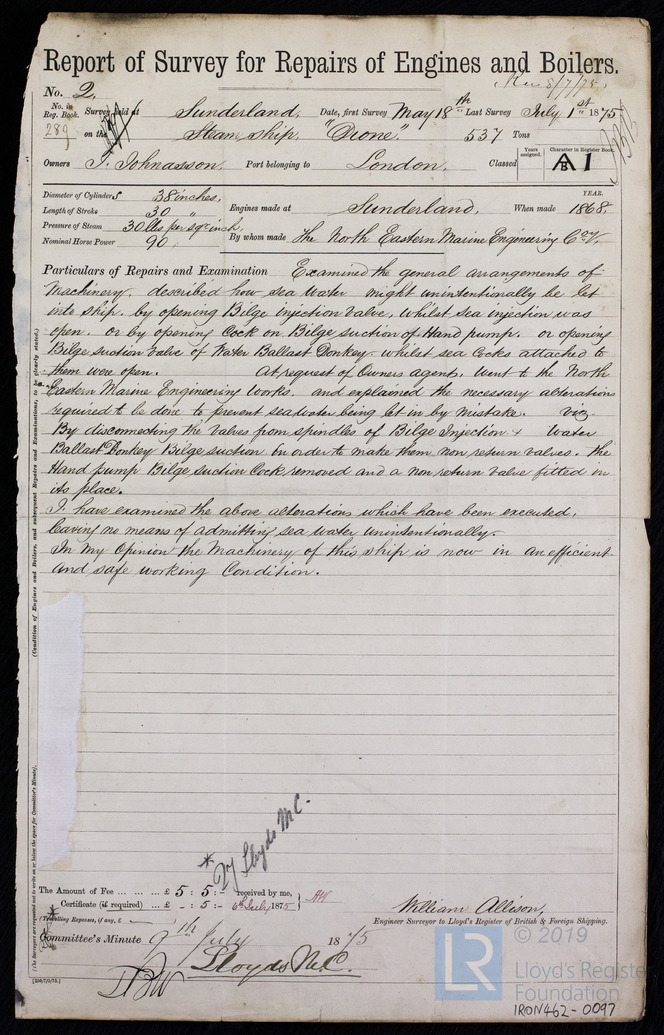 Report of Survey for Repairs of Engines and Boilers.
No. 2. 8/7/75.
No. in Reg. Book. Survey held at Sunderland, Date, first Survey May 18th Last Survey July 1st 1875
289 on the Steam ship "Dione." 537 Tons
Owners J. Johnasson. Port belonging to London. Classed Years assigned. Character in Register Book. 1
Diameter of Cylinders 38 inches. YEAR.
Length of Stroke 30 " Engines made at Sunderland. When made 1868.
Pressure of Steam 30 lbs per sq inch,
Nominal Horse Power 90 By whom made The North Eastern Marine Engineering Coy,
Particulars of Repairs and Examination Examined the general arrangements of
Machinery, described how sea water might unintentionally be let
into ship, by opening Bilge injection valve, whilst sea injection was
open. or by opening Cock on Bilge suction of Hand pump. or opening
Bilge suction valve of Water Ballast Donkey whilst sea Cocks attached to
them were open. At request of Owners agent, went to the North
Eastern Marine Engineering works, and explained the necessary alterations
required to be done to prevent sea water being let in by mistake. viz
By disconnecting the valves from spindles of Bilge Injection & Water
Ballast Donkey Bilge suction in order to make them non return valves. the
Hand pump Bilge suction Cock removed and a non return valve fitted in
its place.
I have examined the above alterations which have been executed,
leaving no means of admitting sea water unintentionally.
In my Opinion the Machinery of this ship is now in an efficient
and safe working Condition.
(Condition of Engines and Boilers, and subsequent Repairs and Examinations, to be clearly stated.)
(The Surveyors are requested not to write on or below the space for Committee's Minute).
* Lloyds MC.
The Amount of Fee ... ... ... £ 5 : 5 : – received by me,
Certificate (if required) ... £ – : 5 – 6th July 1875
(Travelling Expenses, if any, £
William Allison,
Engineer Surveyor to Lloyd's Register of British & Foreign Shipping.
Committee's Minute 9th July 1875
Lloyds M.C.
LR © 2019
Lloyd's Register
Foundation
IRON462-0097